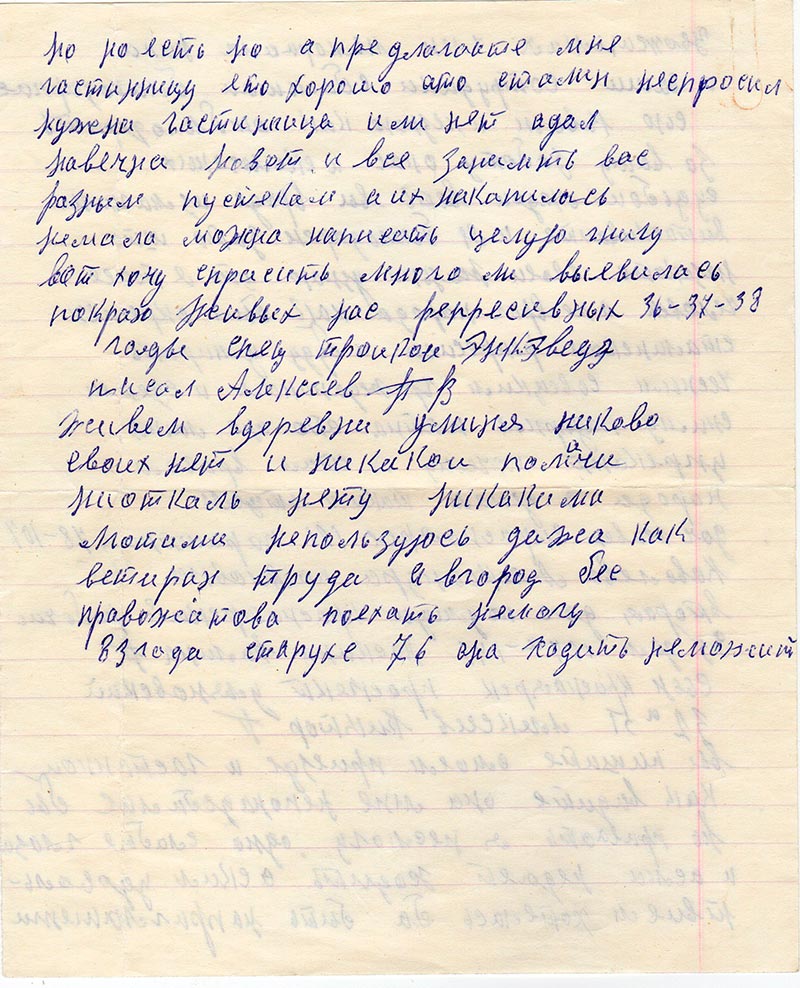 но но есть но а предлагаите мне
гастинницу ето хорошо ато сталин неспросил
нужна гастинница или нет адал
навечна новот и все занимть вас
разным пустекам а их накапилось
немала можна написать целую книгу
вот хочу спрасить много ли выевилась
покраю живых нас репресивных 36-37-38
годы спец троикои ЭНКЭведэ
писал Алексеев П В
живем вдеревни улиця никово
своих нет и никакои помачи
ниоткаль нету никакими
лготами непользуюсь дажа как
ветиран труда а вгород бес
правожатова поехать немогу
83 года старухе 76 она ходить неможит